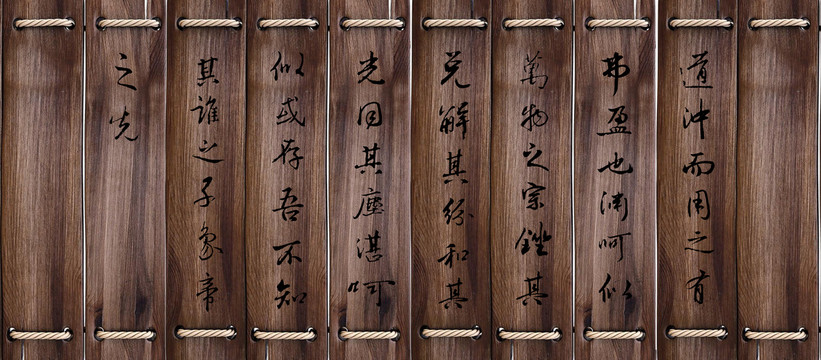 道沖而用之有
弗盈也淵呵似
萬物之宗銼其
兌解其紛和其
光同其塵湛呵
似或存吾不知
其誰之子象帝
之先